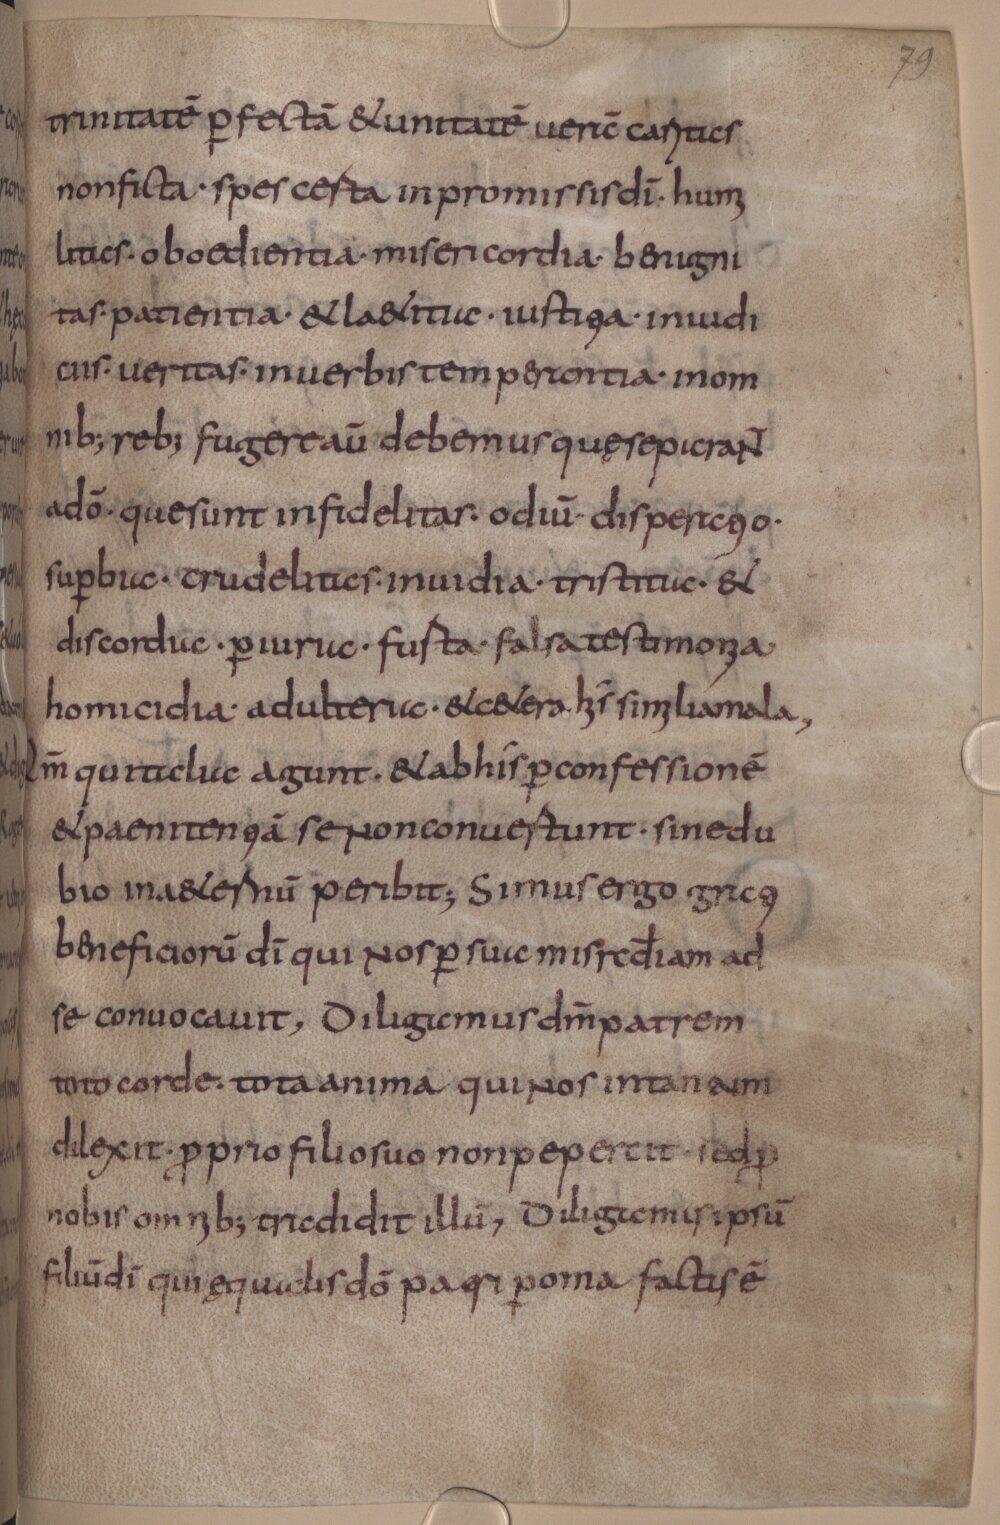 79
trinitatē ꝑfectā &unitatē uerā caritas
nonficta · spes certa in promissis dī · humi
litas · oboedientia · misericordia · benigni
tas · patientia · &la&itia · iustitia · iniudi
ciis · ueritas · inuerbis temperantia · inom
nib; reb; fugereaū debemus quęsepiraNT
adō · quesunt infidelitas · odiū · disperatio ·
suꝑbia · crudelitas · inuidia · tristitia · &
discordia · ꝑiuria · furta · falsa testimonia
homicidia · adulteria · &c&era hīs similia mala,
Nā qui talia agunt · &abhīs ꝑconfessionē
&paenitentiā se Nonconuertunt · sinedu
bio ina&ernū peribit; Simus ergo grati
beneficiorū dī qui Nos ꝑ sua misrcdiam ad
se conuocauit, Diligamus dm̄ patrem
toto corde · tota anima qui Nos intantum
dilexit · ꝓprio filio suo nonpepercit · sed ꝓ
nobis omnib; tradidit illū, Diligamus ipsū
filiū dī qui ęqualis dō patri ꝑ omia factis ē